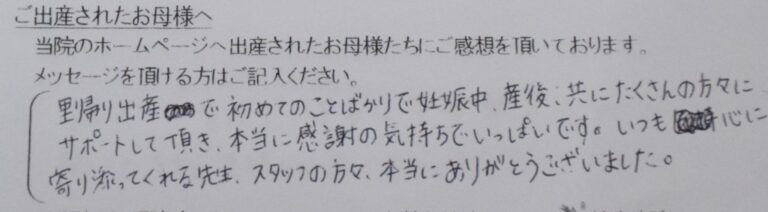 ご出産されたお母様へ
当院のホームページへ出産されたお母様たちにご感想を頂いております。
メッセージを頂ける方はご記入ください。
里帰り出産で初めてのことばかりで妊娠中、産後、共にたくさんの方々に
サポートして頂き、本当に感謝の気持ちでいっぱいです。いつも心に
寄り添ってくれる先生、スタッフの方々、本当にありがとうございました。